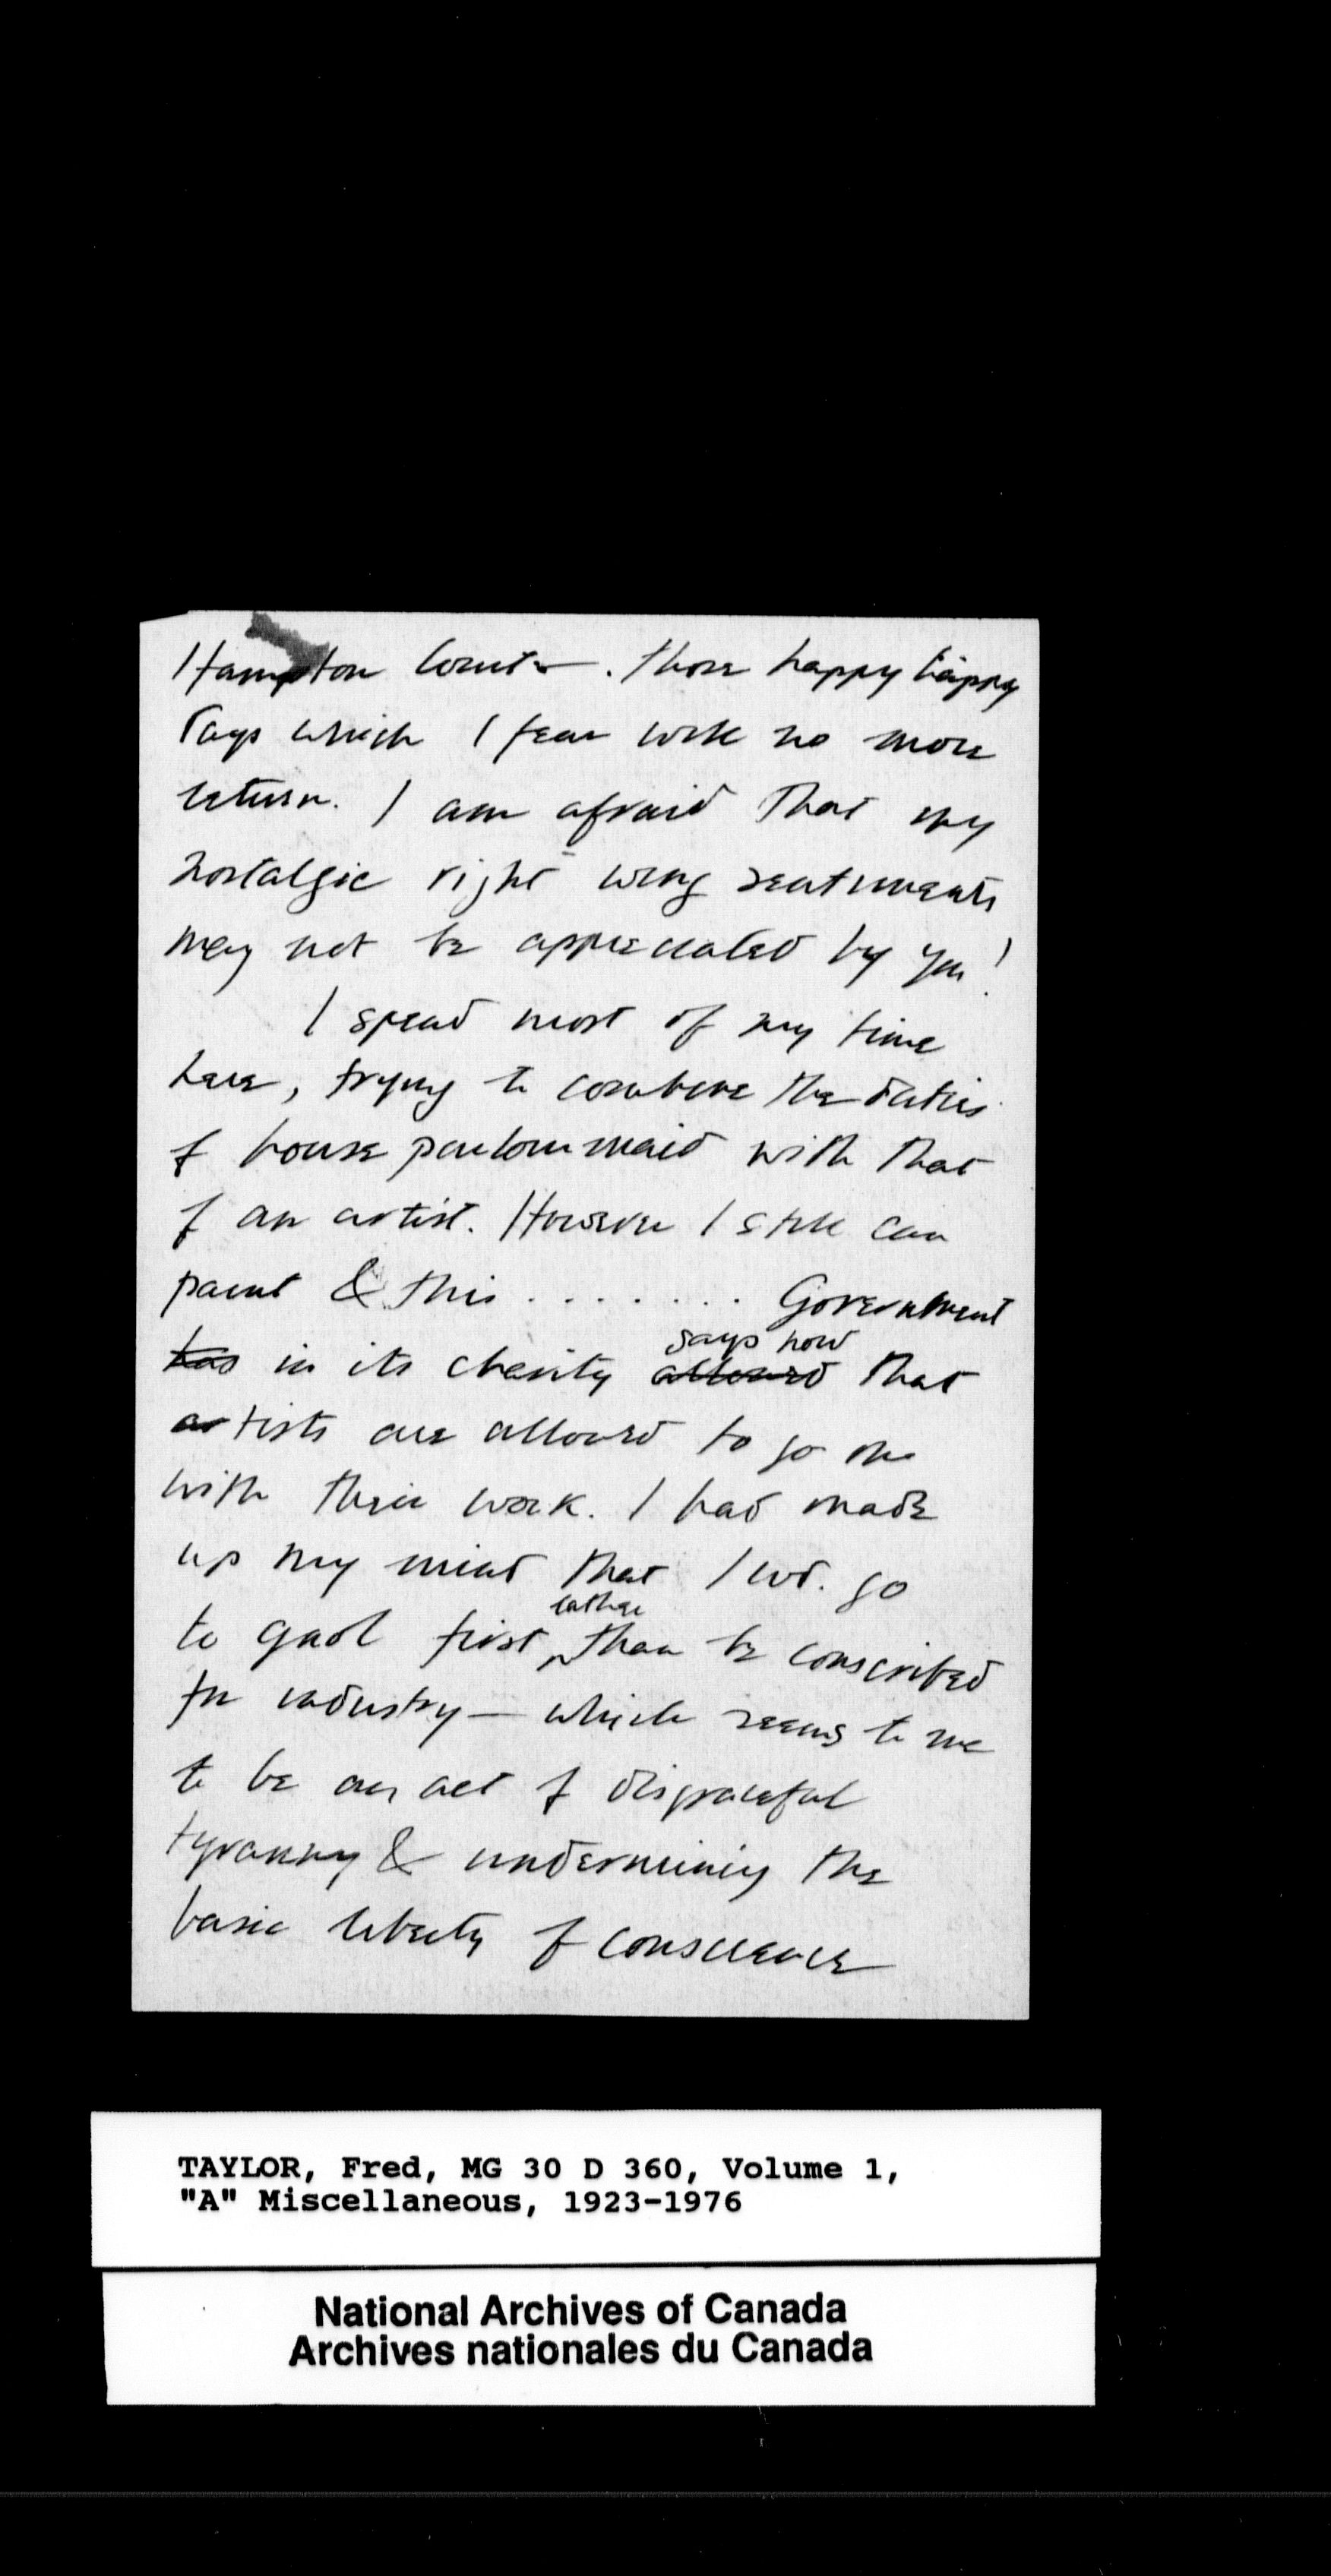 Hampton Court. Those happy happy
days which I fear will no more
return. I am afraid that my
nostalgic right wing sentiments
may not be appreciated by you!
I spend most of my time
here, trying to combine the duties
of house parlourmaid with that
of an artist. However I still can
paint & this . . . . . . . . Government
has in its charity says now allowed that
artists are allowed to go on
with their work. I had made
up my mind that I wd. go
to gaol first, rather than be conscribed
for industry — which seems to me
to be an act of disgraceful
tyranny & undermining the
basic liberty of conscience
TAYLOR, Fred, MG 30 D 360, Volume 1,
"A" Miscellaneous, 1923-1976
National Archives of Canada
Archives nationales du Canada